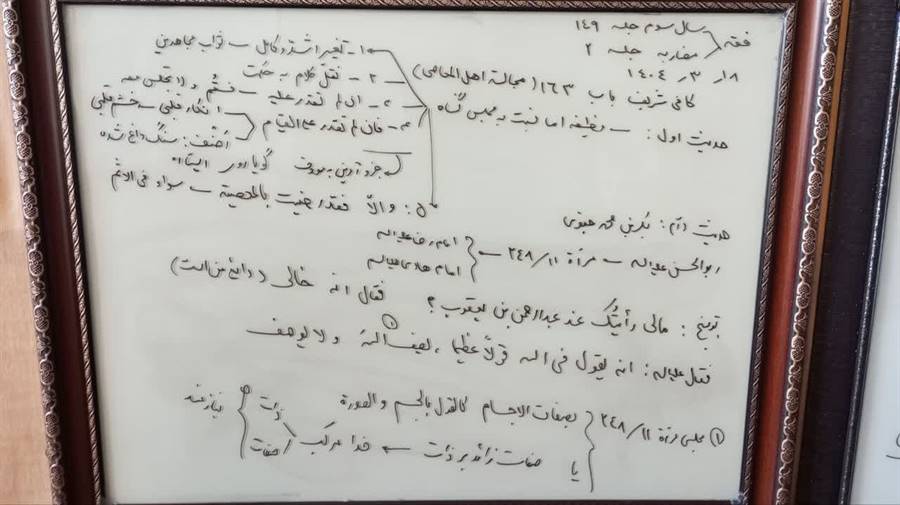 فقه
سال سوم جلسه ۱۴۹
مضاربه جلسه ۲
۱۸ ر ۳ ر ۱۴۰۴
کافی شریف باب ۱۶۳ (مجالسة اهل المعاصی)
حدیث اول: ← وظیفه اما نسبت به مجلس گناه
۱- تغییر اشد و کامل ← ثواب مجاهدین
۲- نقل کلام به حکمت
۳- ان لم تقدر علیه ← فقم و لا تجلس معه
۴- فان لم تقدر علی القیام
انکار قلبی ← خشم قلبی
رضف: سنگ داغ شده
گویا روی
۵: والّا فقد رضیت بالمعصیة ← سواء فی الاثم
حدیث دوم: بکر بن محمد جعفری
ابوالحسن علیه السلام ← مرآة ۱۱/۲۴۸
امام رضا علیه السلام
امام هادی علیه السلام
توبیخ: مالی رأیتک عند عبدالرحمن بن یعقوب؟ فقال انه خالی (دایی من است)
فقال علیه السلام: انه یقول فی الله قولاً عظیما، یصف الله ① ولا یوصف
① مجلسی مرآة ۱۱/۲۴۸
بصفات الاجسام کالقول بالجسم والصورة
یا
صفات زائد بر ذات ← خدا مرکب
ذات
صفات
نیازمند